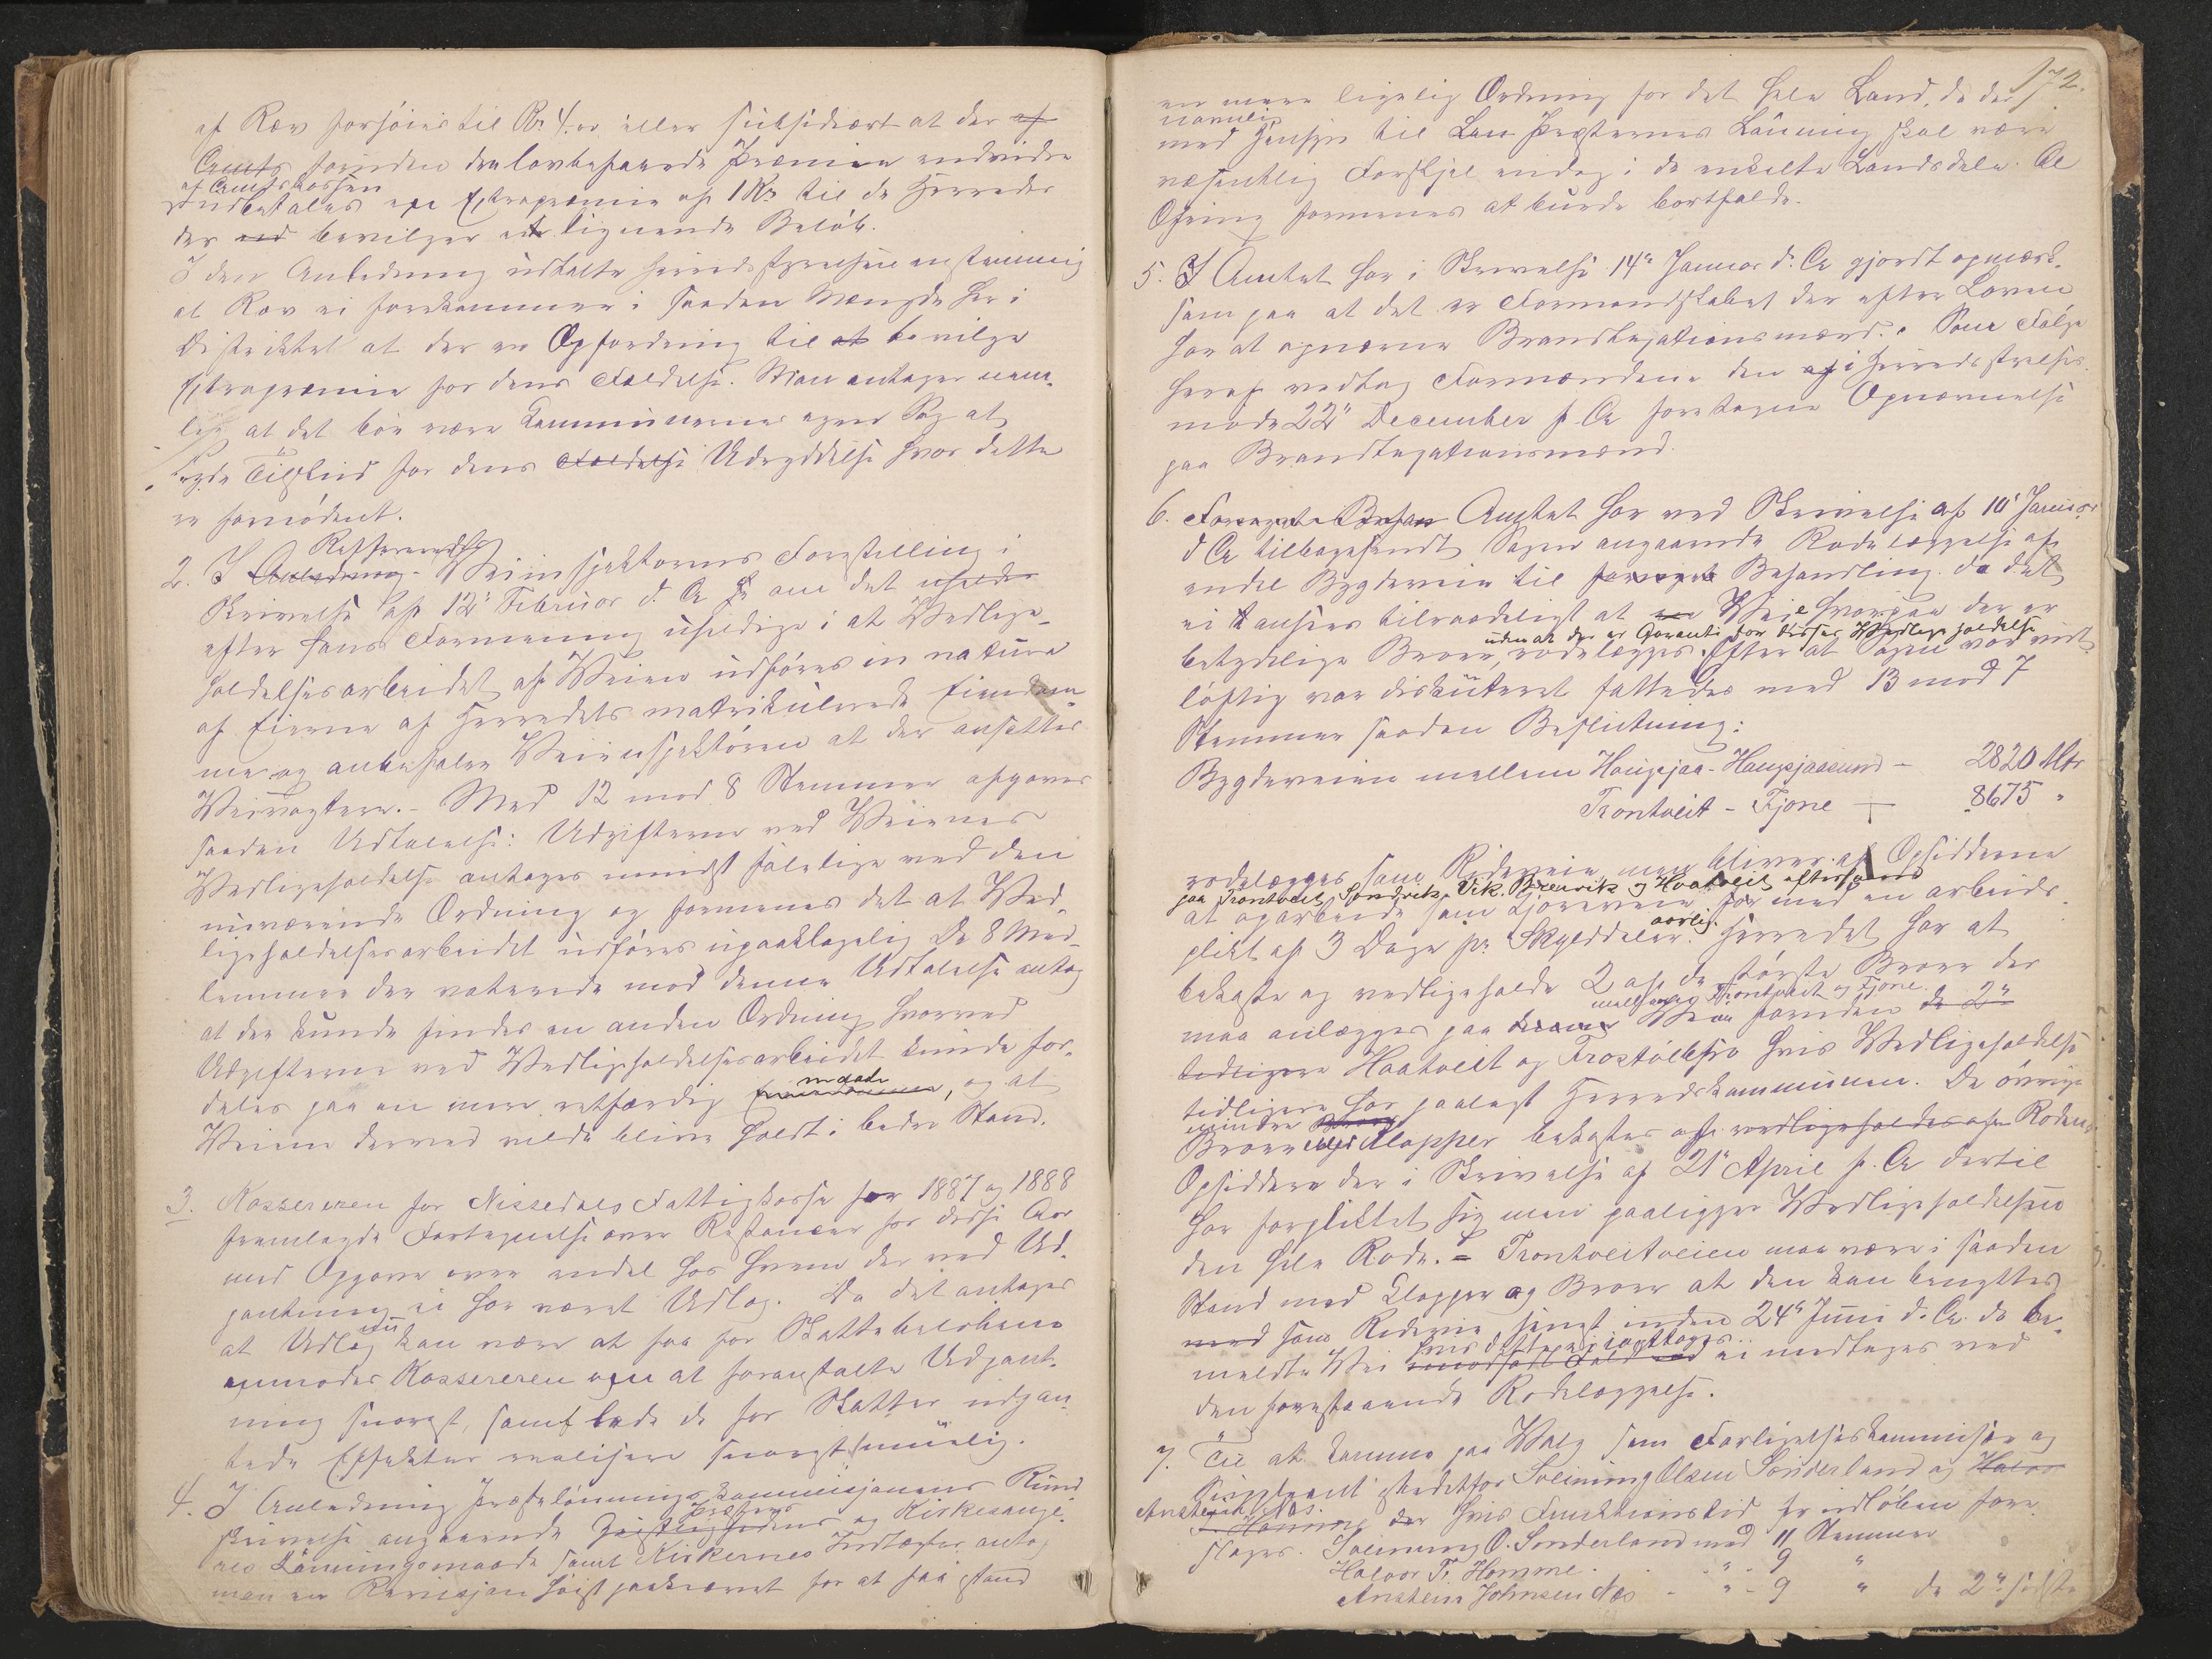 af Ræv forhøies til Kr 4.00 eller subsidiært at der af
Amts foruden den lovbefalede Præmie endvidere
af Amtskassen
udbetales en Extrapræmie af 1 Kr til de Herreder
der ved bevilger et lignende Beløb.
I den Anledning udtalte Herredsstyrelsen enstemmig
at Ræv ei forekommer i saadan Mængde her i
Distriktet at der er Opfordring til at bevilge
Extrapræmie for dens Fældelse. Man antager nem-
lig at det bør være Kommunernes egen Sag at
yde Tilskud for dens Fældelse Udryddelse hvor dette
er fornødent.
2. I Anledning Veiinspektørens Forestilling i
Skrivelse af 12' Februar d. A om det uheldige
efter hans Formening uheldige i at Vedlige-
holdelsesarbeidet af Veiene udføres in natura
af Eierne af Herredets matrikulerede Eiendom-
me og anbefaler Veiinspektøren at der ansættes
Veivogtere. - Med 12 mod 8 Stemmer afgaves
saadan Udtalelse: Udgifterne ved Veienes
Vedligeholdelse antages mindst følelige ved den
nuværende Ordning og formenes det at Ved-
ligeholdelsesarbeidet udføres upaaklagelig. De 8 Med-
lemmer der voterede mod denne Udtalelse antog
at der kunde findes en anden Ordning hvorved
Udgifterne ved Vedligeholdelsesarbeidet kunde for-
deles paa en mere retfærdig maade, og at
Veiene derved vilde blive holdt i bedre Stand.
3. Kassereren for Nissedals Fattigkasse for 1887 og 1888
fremlagde Fortegnelse over Restancer for disse Aar
med Opgave over endel hos hvem der ved Ud-
pantning ei har været Udlæg. Da det antages
at Udlæg nu kan være at faa for Skattebeløbene
anmodes Kassereren om at foranstalte Udpant-
ning snarest, samt lade de for Skatter udpan-
tede Effekter realisere snarest muelig.
4. I Anledning Præstelønningskommisjonens Rund-
skrivelse angaaende Præsternes og Kirkesange-
res Lønningsmaade samt Kirkernes Indtægter antog
man en Revisjon høist paakrævet for at faa istand
172.
en mere ligelig Ordning for det hele Land, da der
navnlig
med Hensyn til Præsternes Lønning skal være
væsentlig Forskjel endog i de enkelte Landsdele. Al
Ofring formenes at burde bortfalde.
5. Amtet har i Skrivelse 14' Januar d. A gjordt opmærk-
som paa at det er Formandskabet der efter Loven
har at opnævne Brandtaxationsmænd. Som Følge
heraf vedtog Formændene den i Herredsstyrelses-
møde 22' December f. A foretagne Opnævnelse
paa Brandtaxationsmænd.
6. Amtet har ved Skrivelse af 10' Januar
d A tilbagesendt Sagen angaaende Rodelæggelse af
endel Bygdeveie til fornyet Behandling. da det
ei ansees tilraadeligt at Veie hvorpaa der er
uden at der er Garanti for disses Vedligeholdelse
betydelige Broer, rodelægges. Efter at Sagen var vidt
løftig var diskuteret fattedes med 13 mod 7
Stemmer saadan Beslutning:
Bygdeveien mellem Haugsjaa-Haugsjaasund - 2820 Mtr
Trontveit - Fjone - 8675 "
rodelægges som Rideveie men bliver af Opsidderne
paa Trontveit, Sondvik, Vik, Breivik og Haatveit
at oparbeide som Kjørevei med en arbeids-
plikt af 3 Dage pr Skylddaler aarlig. Herredet har at
bekoste og vedligeholde 2 af de største Broer der
mellem Trontveit og Fjone
maa anlægges paa Veien foruden de 2'
tidligere Haatveit og hvis Vedligeholdelse
tidligere har paalagt Herredskommunen. De øvrige
mindre
Broer og Klopper bekostes af vedligeholdes af Rodens
Opsiddere der i Skrivelse af 21' April f. A dertil
har forpliktet sig men paaligger Vedligeholdelsen
den hele Rode. - Trontveitveien maa være i saadan
Stand med Klopper og Broer at den kan benyttes
med som Ridevei senest inden 24' Juni d. A. da be-
hvis dette ei iagttages
meldte Vei ei medtages ved
den forestaaende Rodelæggelse.
7. Til at komme paa Valg som Forligelseskommisær og
Suppleant istedetfor Solmung Olsen Sonderland og Halvor
Anstein J. Næs
T. Homme der hvis Funktionstid er udløben fore
sloges. Solmung O. Sonderland med 11 Stemmer
Halvor T. Homme. " - 9 "
Anstein Johnsen Næs - " - 9 " de 2' sidste